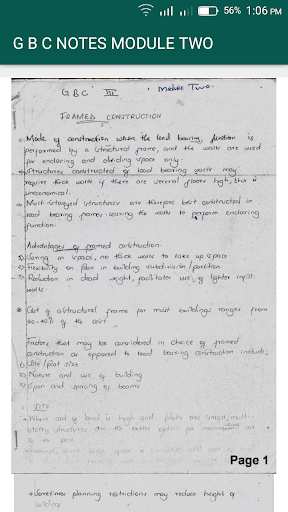 56% 1:06 PM
G B C NOTES MODULE TWO
G B C III Module Two.
FRAMED CONSTRUCTION
Mode of construction where the load bearing function is
performed by a structural frame, and the walls are used
for enclosing and dividing space only.
Structures constructed of load bearing walls may
require thick walls if there are several floors high, thus
uneconomical.
Multi-storeyed structures are therefore best constructed in
load bearing frames leaving the walls to perform enclosing
function.
Advantages of framed construction.
Saving in space, no thick walls to take up space
Flexibility on plan in building subdivision/partition.
Reduction in dead weight, facilitates use of lighter infill
walls.
Cost of a structural frame for most buildings ranges from
of the cost
Factors that may be considered in choice of framed
construction as opposed to load bearing construction include;
Site/plot size
Nature and use of building
Span and spacing of beams
SITE
Where cost of land is high and plots are small, multi-
storey structures are the better option for
of the
Page 1
Sometimes planning restrictions may reduce height of
building